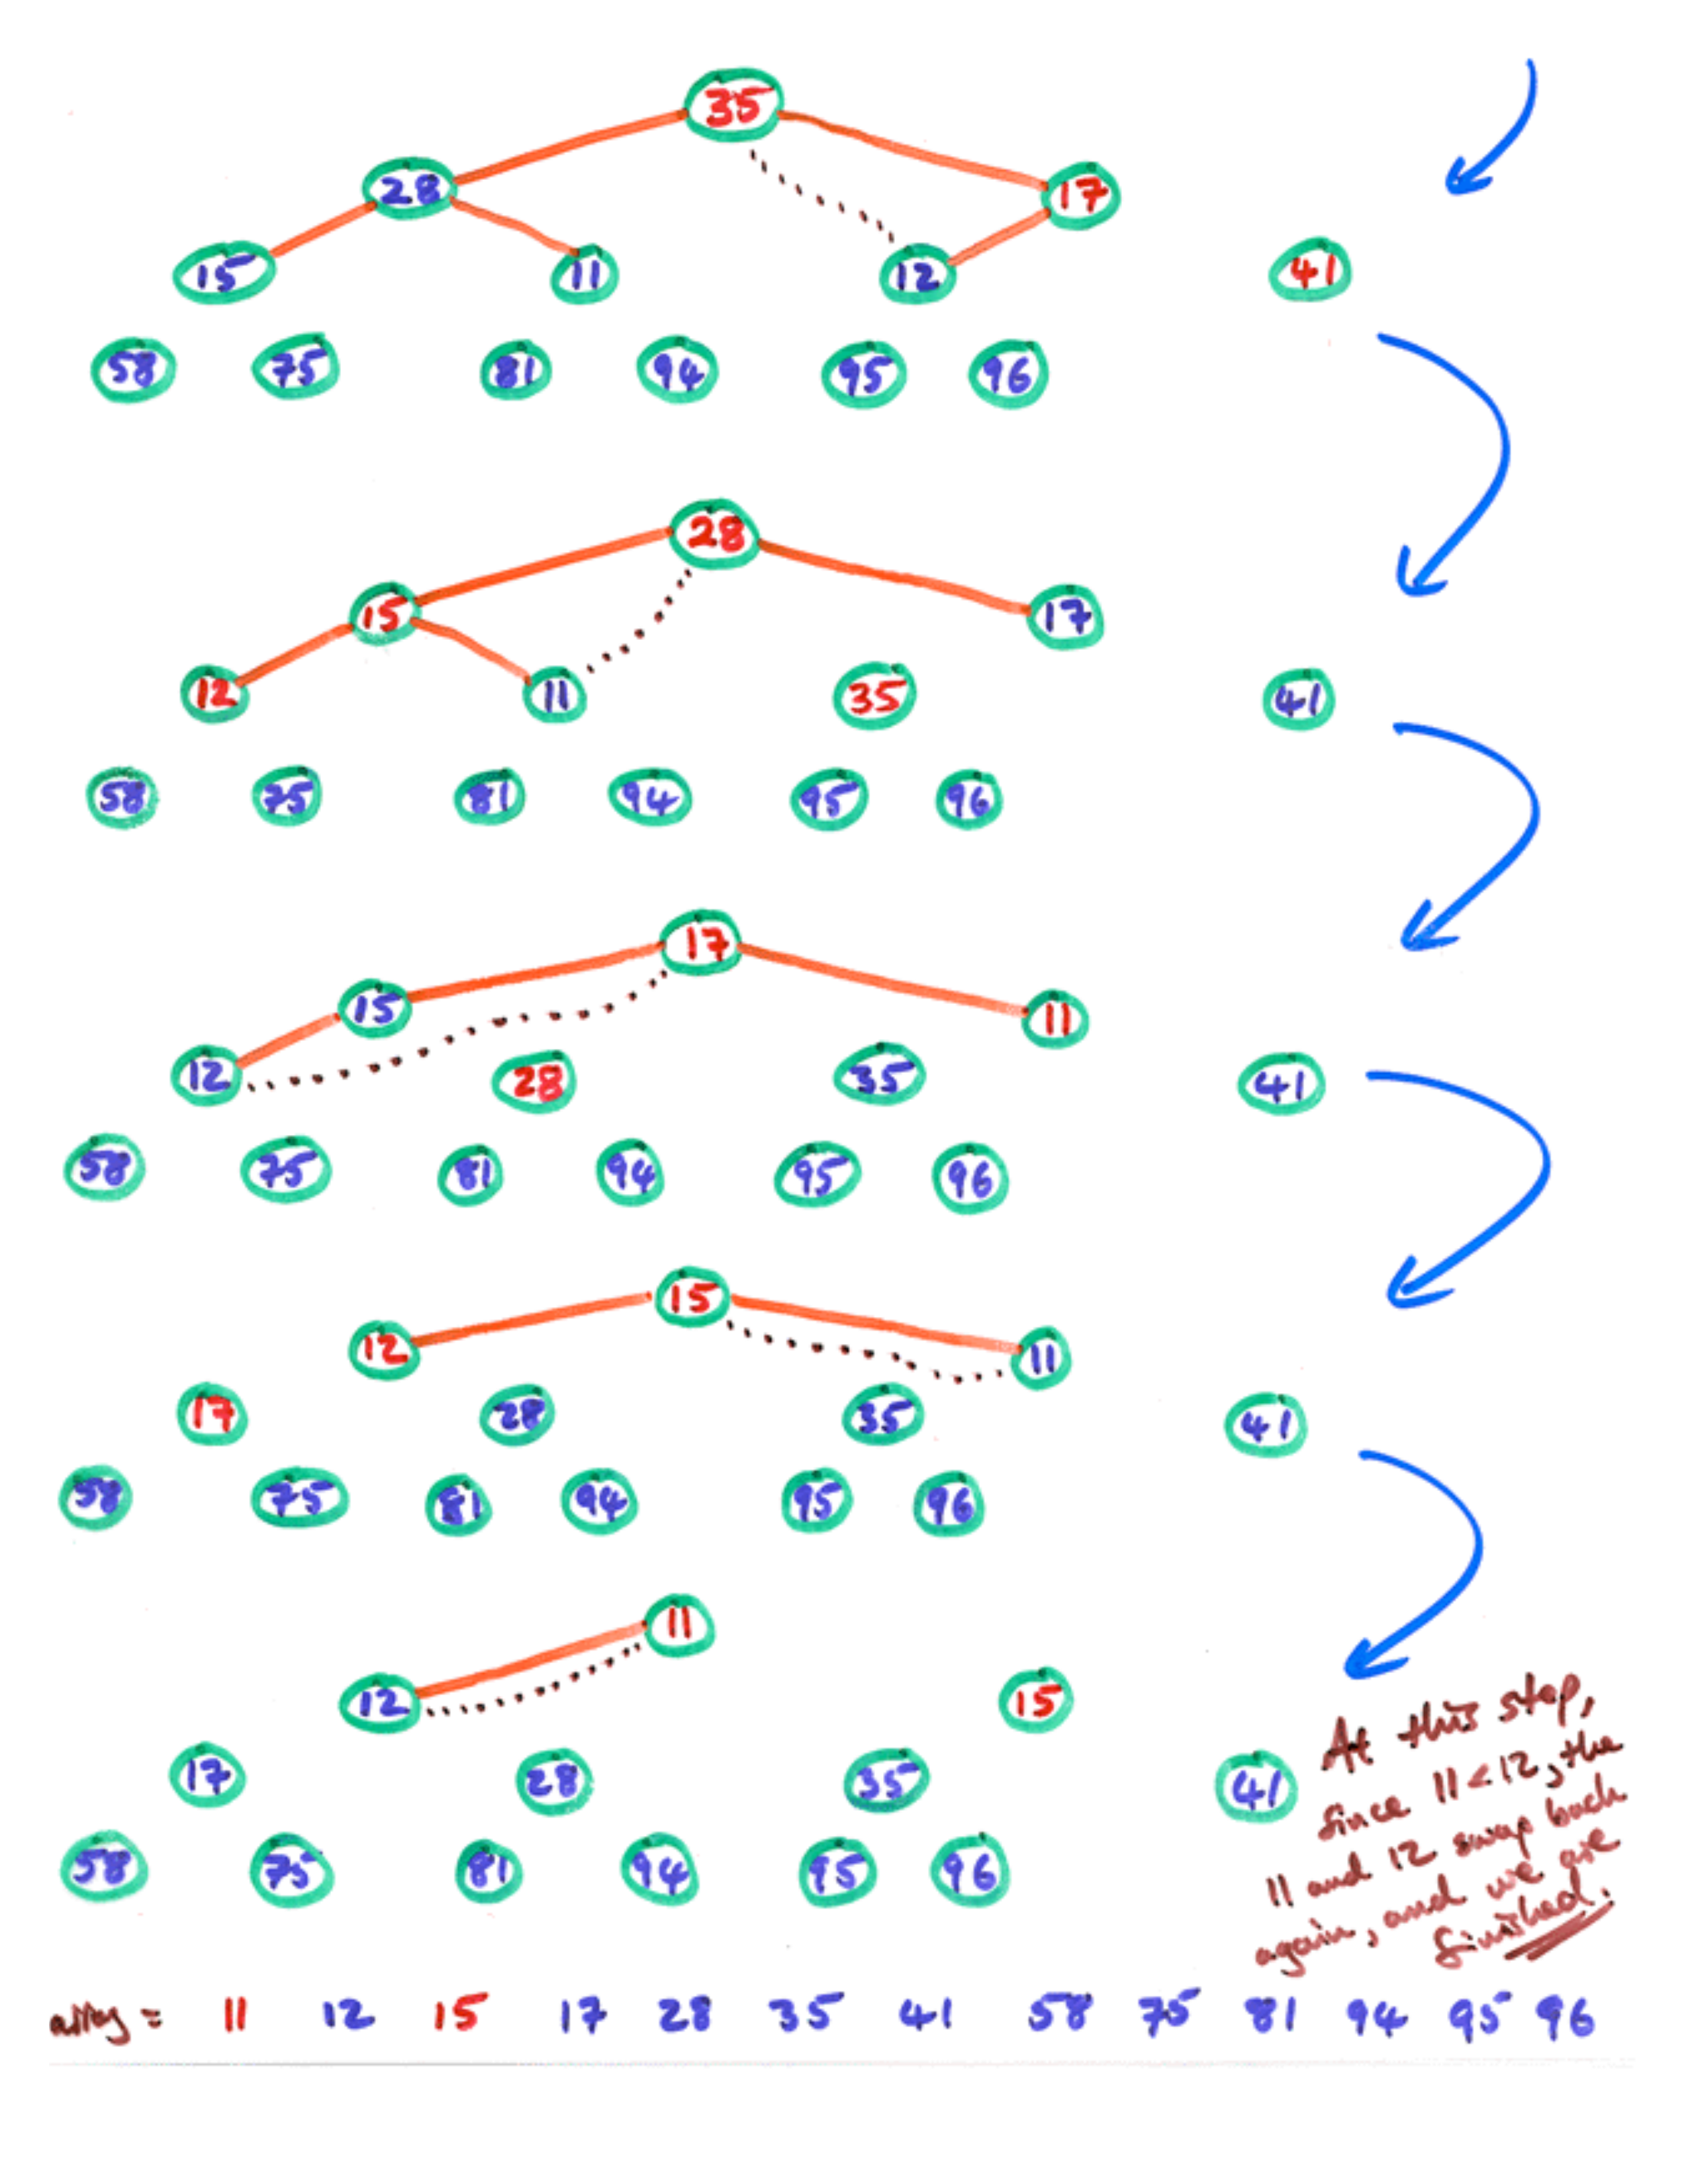 35
28 17
15 11 12 41
58 75 81 94 95 96
28
15 17
12 11 35 41
58 75 81 94 95 96
17
15 11
12 28 35 41
58 75 81 94 95 96
15
12 11
17 28 35 41
58 75 81 94 95 96
11
12 15
17 28 35 41
58 75 81 94 95 96
At this step,
since 11<12, the
11 and 12 swap back
again, and we are
finished.
array = 11 12 15 17 28 35 41 58 75 81 94 95 96